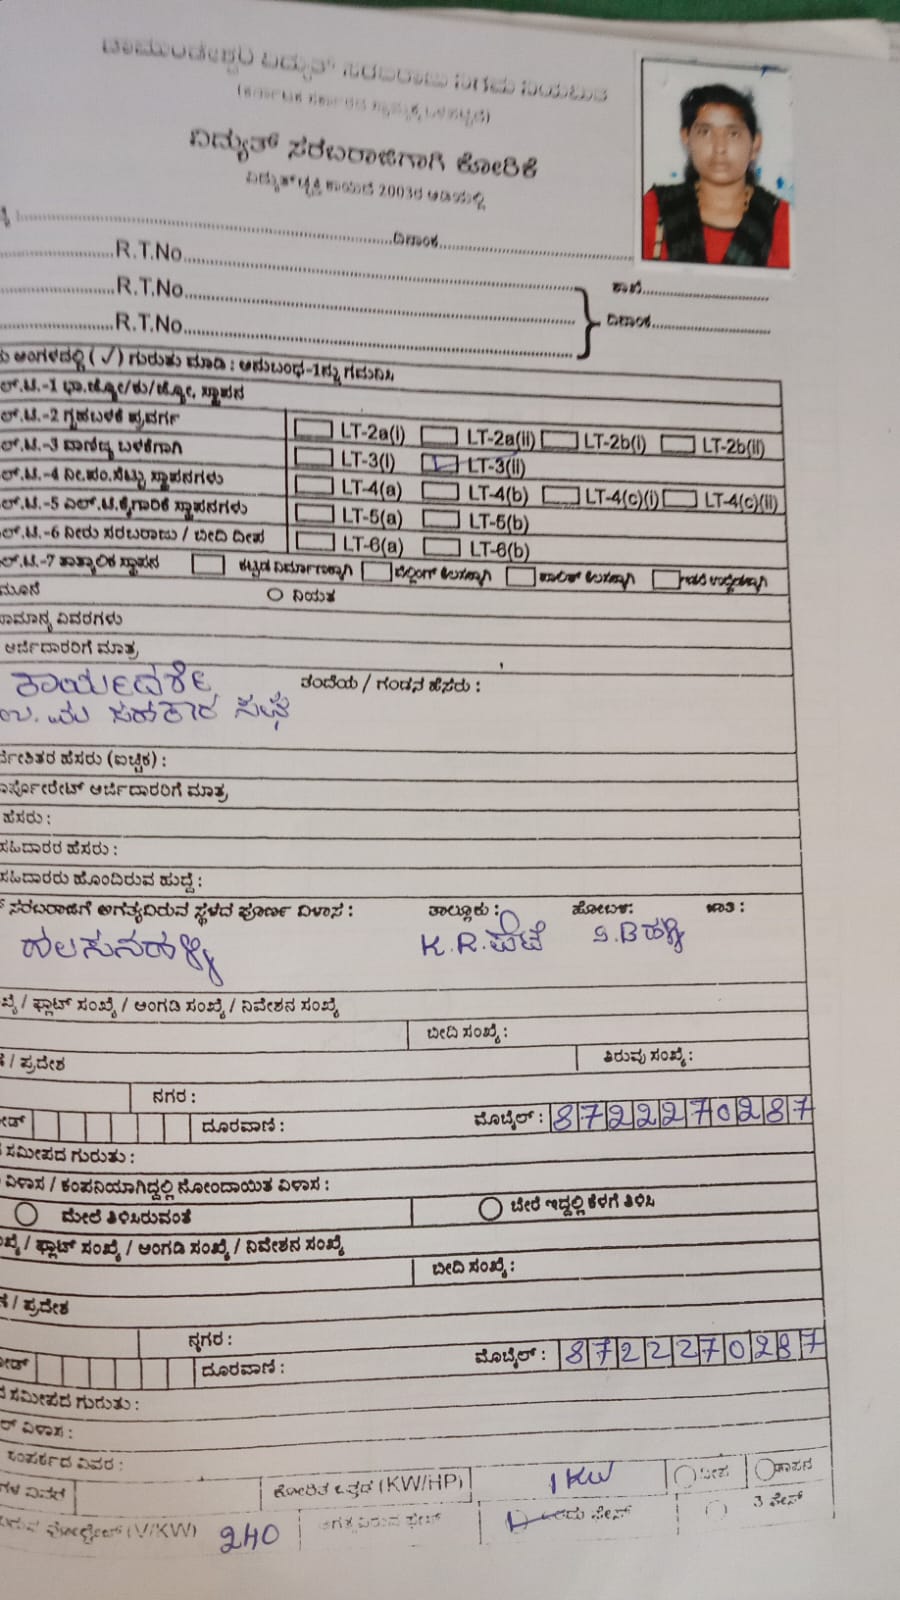 ಚಾಮುಂಡೇಶ್ವರಿ ವಿದ್ಯುತ್ ಸರಬರಾಜು ನಿಗಮ ನಿಯಮಿತ
(ಕರ್ನಾಟಕ ಸರ್ಕಾರದ ಸ್ವಾಮ್ಯಕ್ಕೆ ಒಳಪಟ್ಟಿದೆ)
ವಿದ್ಯುತ್ ಸರಬರಾಜಿಗಾಗಿ ಕೋರಿಕೆ
ವಿದ್ಯುಚ್ಛಕ್ತಿ ಕಾಯಿದೆ 2003ರ ಅಡಿಯಲ್ಲಿ
ದಿನಾಂಕ
R.T.No
R.T.No ಶಾಖೆ
R.T.No ದಿನಾಂಕ
ಅಂಗಳದಲ್ಲಿ (✓) ಗುರುತು ಮಾಡಿ : ಅನುಬಂಧ-1ನ್ನು ಗಮನಿಸಿ
ಲ್.ಟಿ.-1 ಭಾ.ಜ್ಯೋ/ಕು/ಜ್ಯೋ, ಸ್ಥಾಪನ
ಲ್.ಟಿ.-2 ಗೃಹಬಳಕೆ ಪ್ರವರ್ಗ LT-2a(i) LT-2a(ii) LT-2b(i) LT-2b(ii)
ಲ್.ಟಿ.-3 ವಾಣಿಜ್ಯ ಬಳಕೆಗಾಗಿ LT-3(i) LT-3(ii)
ಲ್.ಟಿ.-4 ನೀ.ಪಂ.ಸೆಟ್ಟು ಸ್ಥಾಪನಗಳು LT-4(a) LT-4(b) LT-4(c)(i) LT-4(c)(ii)
ಲ್.ಟಿ.-5 ಎಲ್.ಟಿ.ಕೈಗಾರಿಕೆ ಸ್ಥಾಪನಗಳು LT-5(a) LT-5(b)
ಲ್.ಟಿ.-6 ನೀರು ಸರಬರಾಜು / ಬೀದಿ ದೀಪ LT-6(a) LT-6(b)
ಲ್.ಟಿ.-7 ತಾತ್ಕಾಲಿಕ ಸ್ಥಾಪನ ಕಟ್ಟಡ ನಿರ್ಮಾಣಕ್ಕಾಗಿ
ನಿಯತ
ಸಾಮಾನ್ಯ ವಿವರಗಳು
ಅರ್ಜಿದಾರರಿಗೆ ಮಾತ್ರ
ಕಾರ್ಯದರ್ಶಿ ತಂದೆಯ / ಗಂಡನ ಹೆಸರು :
ಸಹಕಾರ ಸಂಘ
ಹೆಸರು (ಐಚ್ಛಿಕ) :
ಾರ್ಪೋರೇಟ್ ಅರ್ಜಿದಾರರಿಗೆ ಮಾತ್ರ
ಹೆಸರು :
ಸಹಿದಾರರ ಹೆಸರು :
ಸಹಿದಾರರು ಹೊಂದಿರುವ ಹುದ್ದೆ :
ಸರಬರಾಜಿಗೆ ಅಗತ್ಯವಿರುವ ಸ್ಥಳದ ಪೂರ್ಣ ವಿಳಾಸ : ತಾಲ್ಲೂಕು : ಹೋಬಳಿ: ಜಾತಿ :
ಹಲಸುನಹಳ್ಳಿ K.R.ಪೇಟೆ S.Bಹಳ್ಳಿ
/ ಫ್ಲಾಟ್ ಸಂಖ್ಯೆ / ಅಂಗಡಿ ಸಂಖ್ಯೆ / ನಿವೇಶನ ಸಂಖ್ಯೆ
ಬೀದಿ ಸಂಖ್ಯೆ :
/ ಪ್ರದೇಶ ತಿರುವು ಸಂಖ್ಯೆ :
ನಗರ :
ದೂರವಾಣಿ : ಮೊಬೈಲ್ : 8722270287
ಸಮೀಪದ ಗುರುತು :
ವಿಳಾಸ / ಕಂಪನಿಯಾಗಿದ್ದಲ್ಲಿ ನೋಂದಾಯಿತ ವಿಳಾಸ :
ಮೇಲೆ ತಿಳಿಸಿರುವಂತೆ ಬೇರೆ ಇದ್ದಲ್ಲಿ ಕೆಳಗೆ ತಿಳಿಸಿ
/ ಫ್ಲಾಟ್ ಸಂಖ್ಯೆ / ಅಂಗಡಿ ಸಂಖ್ಯೆ / ನಿವೇಶನ ಸಂಖ್ಯೆ
ಬೀದಿ ಸಂಖ್ಯೆ :
/ ಪ್ರದೇಶ
ನಗರ :
ದೂರವಾಣಿ : ಮೊಬೈಲ್ : 8722270287
ಸಮೀಪದ ಗುರುತು :
ವಿಳಾಸ :
ಸಂಪರ್ಕದ ವಿವರ :
ವಿವರ ಕೋರಿತ ಒತ್ತಡ (KW/HP) 1 KW ದೀಪ ತಾಪನ
ವೋಲ್ಟೇಜ್ (V/KW) 240 ಅಗತ್ಯವಿರುವ ಫೇಸ್ ಒಂದು ಫೇಸ್ 3 ಫೇಸ್